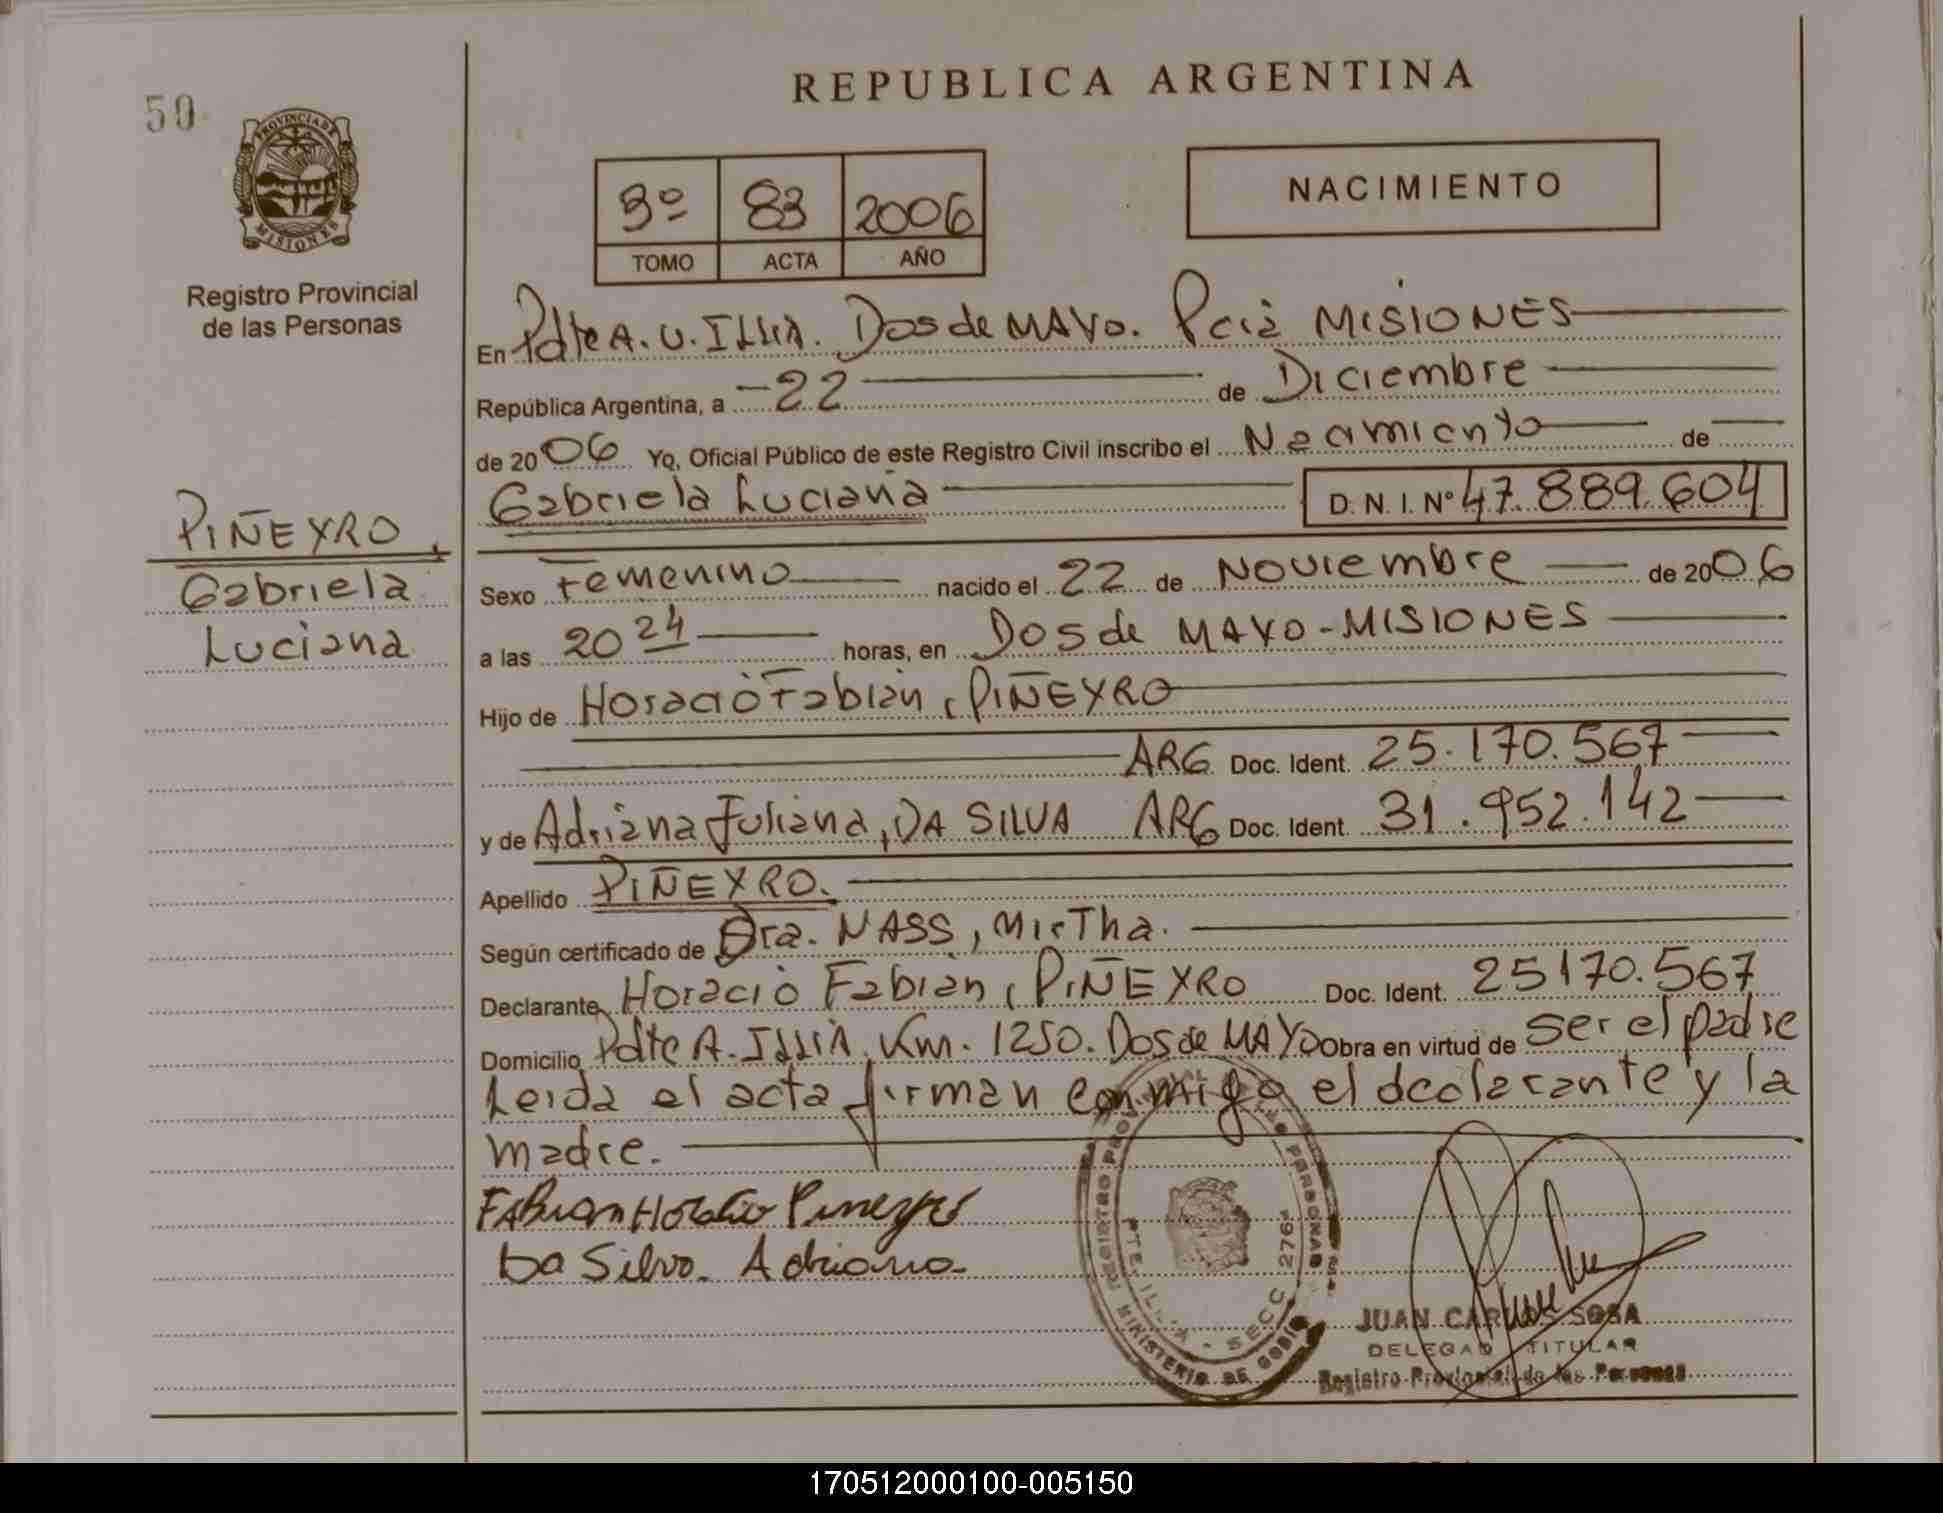 50
REPUBLICA ARGENTINA
PROVINCIA DE
MISIONES
Registro Provincial
de las Personas
3º 83 2006
TOMO ACTA AÑO
NACIMIENTO
En Pdte A. U. ILLIA. Dos de MAYO. Pcia MISIONES
República Argentina, a -22 de Diciembre
de 2006 Yo, Oficial Público de este Registro Civil inscribo el Nacimiento de
Gabriela Luciana D. N. I. Nº 47.889.604
PIÑEYRO,
Gabriela
Luciana
Sexo Femenino nacido el 22 de Noviembre de 2006
a las 20 24 horas, en Dos de MAYO-MISIONES
Hijo de Horacio Fabián, PIÑEYRO
ARG Doc. Ident. 25.170.567
y de Adriana Juliana, DA SILVA ARG Doc. Ident. 31.952.142
Apellido PIÑEYRO.
Según certificado de Dra. NASS, MirTha.
Declarante Horacio Fabián, PIÑEYRO Doc. Ident. 25170.567
Domicilio Pdte A. ILLIA. Km. 1250. Dos de MAYO Obra en virtud de ser el padre
Leida el acta firman conmigo el declarante y la
madre.
Fabian Horacio Pineyro
Da Silva Adriana
PTE. ILLIA - SECC. 2276ª
MINISTERIO DE GOBIE
JUAN CARLOS SOSA
DELEGADO TITULAR
Registro Provincial de las Personas
170512000100-005150